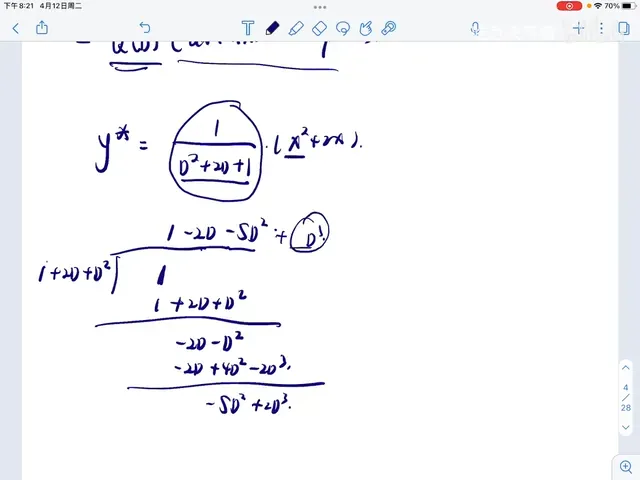 下午8:21 4月12日周二
70%
y* = 1/(D²+2D+1) · (x²+2x).
1 - 2D - 5D² + D³.
1+2D+D² 1
1 + 2D + D²
-2D - D²
-2D + 4D² - 2D³.
-5D² + 2D³.
4
/
28